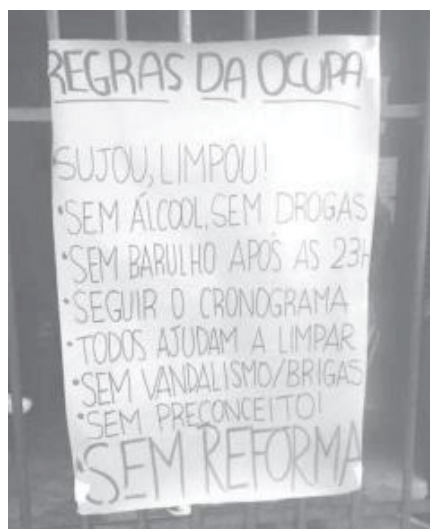 REGRAS DA OCUPA
SUJOU, LIMPOU!
•SEM ÁLCOOL, SEM DROGAS
•SEM BARULHO APÓS AS 23H
•SEGUIR O CRONOGRAMA
•TODOS AJUDAM A LIMPAR
•SEM VANDALISMO/BRIGAS
•SEM PRECONCEITO!
•SEM REFORMA